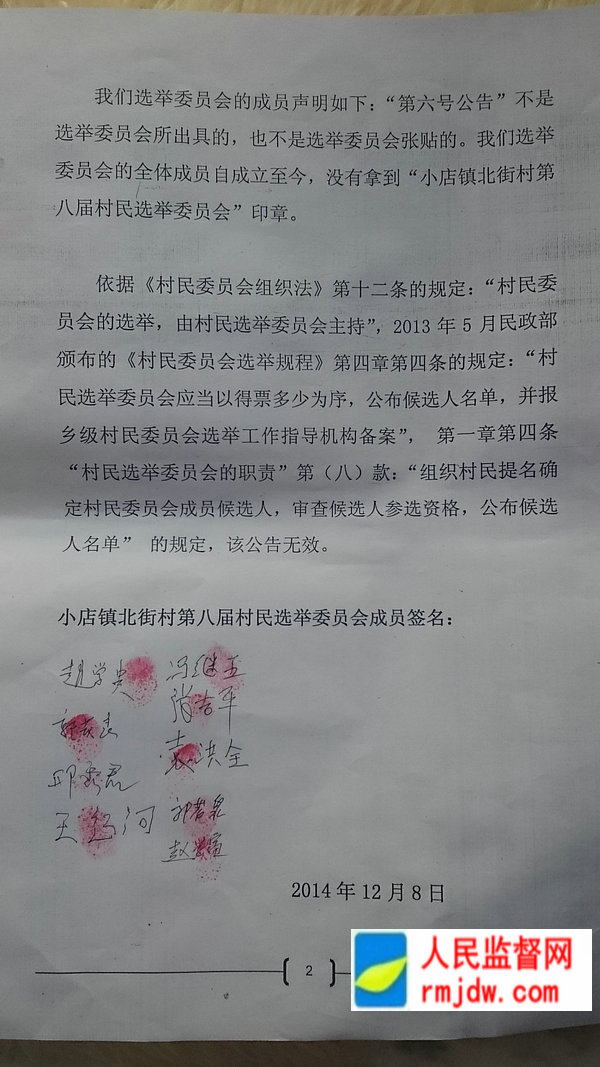 我们选举委员会的成员声明如下：“第六号公告”不是
选举委员会所出具的，也不是选举委员会张贴的。我们选举
委员会的全体成员自成立至今，没有拿到“小店镇北街村第
八届村民选举委员会”印章。
依据《村民委员会组织法》第十二条的规定：“村民委
员会的选举，由村民选举委员会主持”，2013 年 5 月民政部
颁布的《村民委员会选举规程》第四章第四条的规定：“村
民选举委员会应当以得票多少为序，公布候选人名单，并报
乡级村民委员会选举工作指导机构备案”， 第一章第四条
“村民选举委员会的职责”第（八）款：“组织村民提名确
定村民委员会成员候选人，审查候选人参选资格，公布候选
人名单” 的规定，该公告无效。
小店镇北街村第八届村民选举委员会成员签名：
冯继玉
张吉平
袁洪全
2014 年 12 月 8 日
2
人民监督网
rmjdw.com